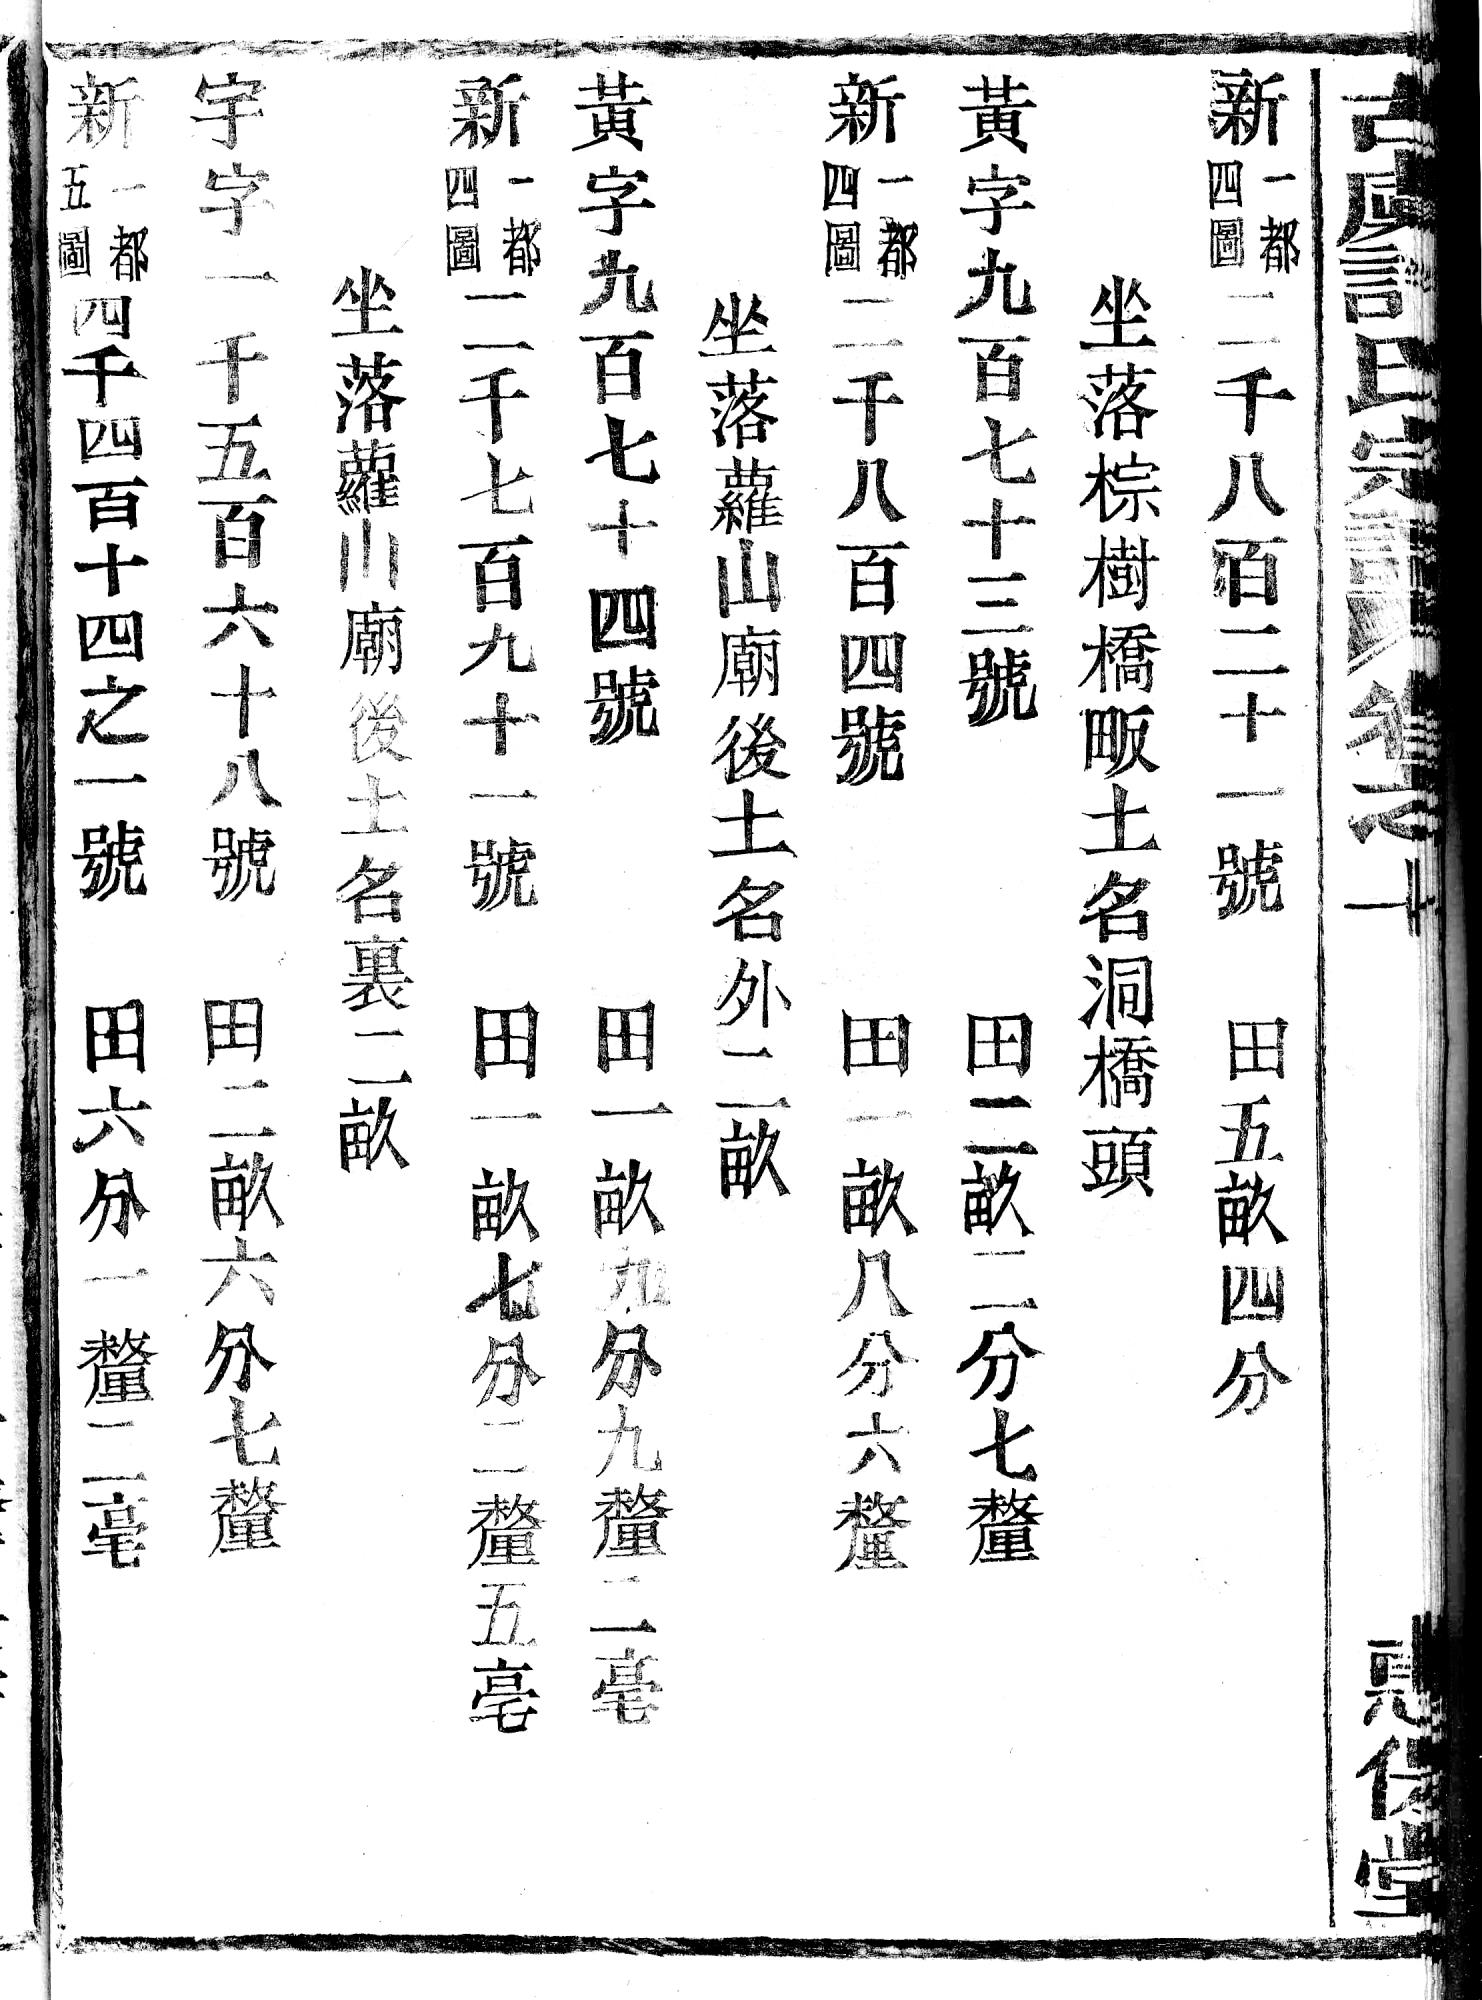 古虞許氏宗譜卷之十一
惠保堂
新一都四圖二千八百二十一號 田五畝四分
坐落棕樹橋畈土名洞橋頭
黃字九百七十三號 田二畝二分七釐
新一都四圖二千八百四號 田一畝八分六釐
坐落蘿山廟後土名外二畝
黃字九百七十四號 田一畝九分九釐二毫
新一都四圖二千七百九十一號 田一畝七分二釐五毫
坐落蘿山廟後土名裏二畝
宇字一千五百六十八號 田二畝六分七釐
新一都五圖四千四百十四之一號 田六分一釐二毫